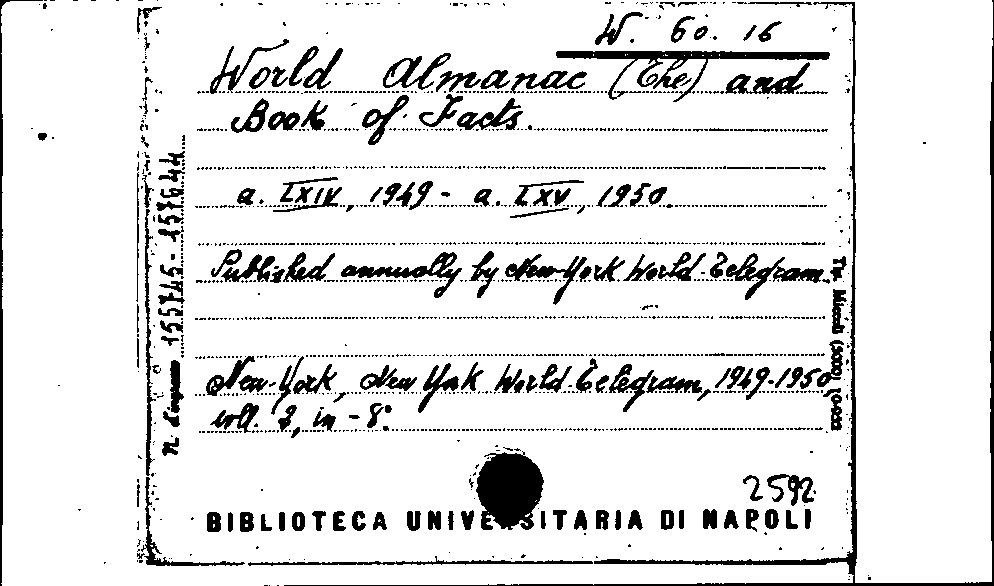 W. 60. 16
World Almanac (The) and
Book of Facts.
a. LXIV, 1949 - a. LXV, 1950.
Published annually by New-York World-Telegram.
New-York, New York World-Telegram, 1949-1950
voll. 2, in - 8°.
2592
BIBLIOTECA UNIVERSITARIA DI NAPOLI
n. d'ingresso 155745 - 157644
Tip. Miccoli (5000)